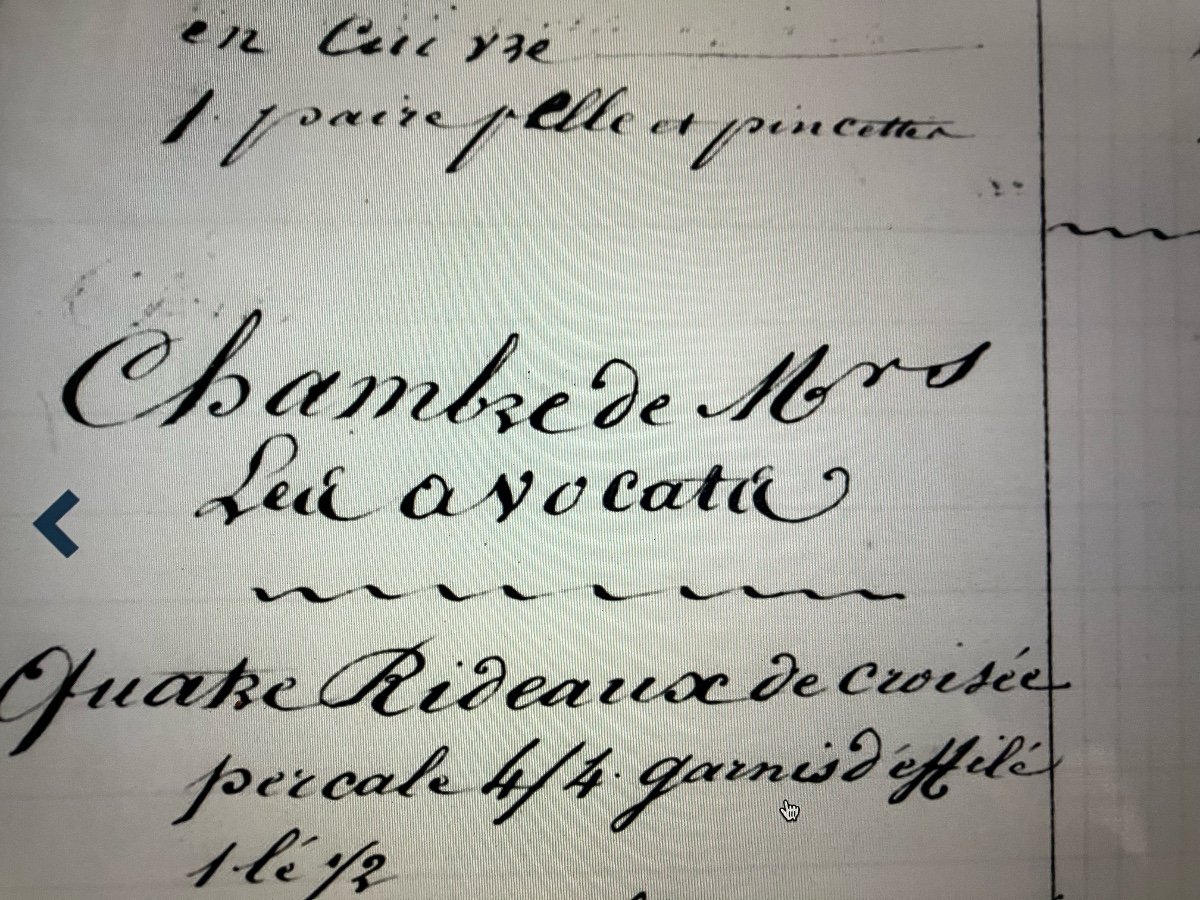 en Cuivre
1 paire pelle et pincettes
Chambre de Mrs
Les avocats
Quatre Rideaux de croisée
percale 4/4 garnis d'éffilé
1 lé 1/2